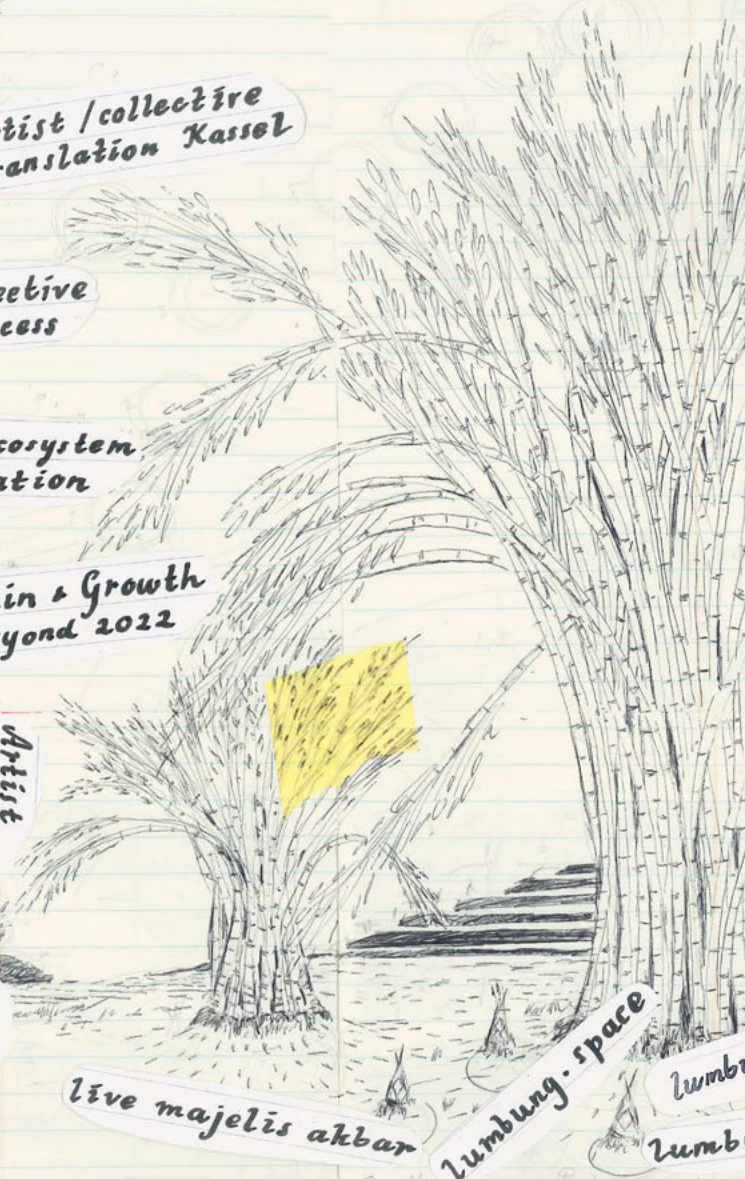 tist / collective
ranslation Kassel
ective
cess
cosystem
ation
in & Growth
yond 2022
Artist
live majelis akbar
lumbung.space
lumbu
lumb